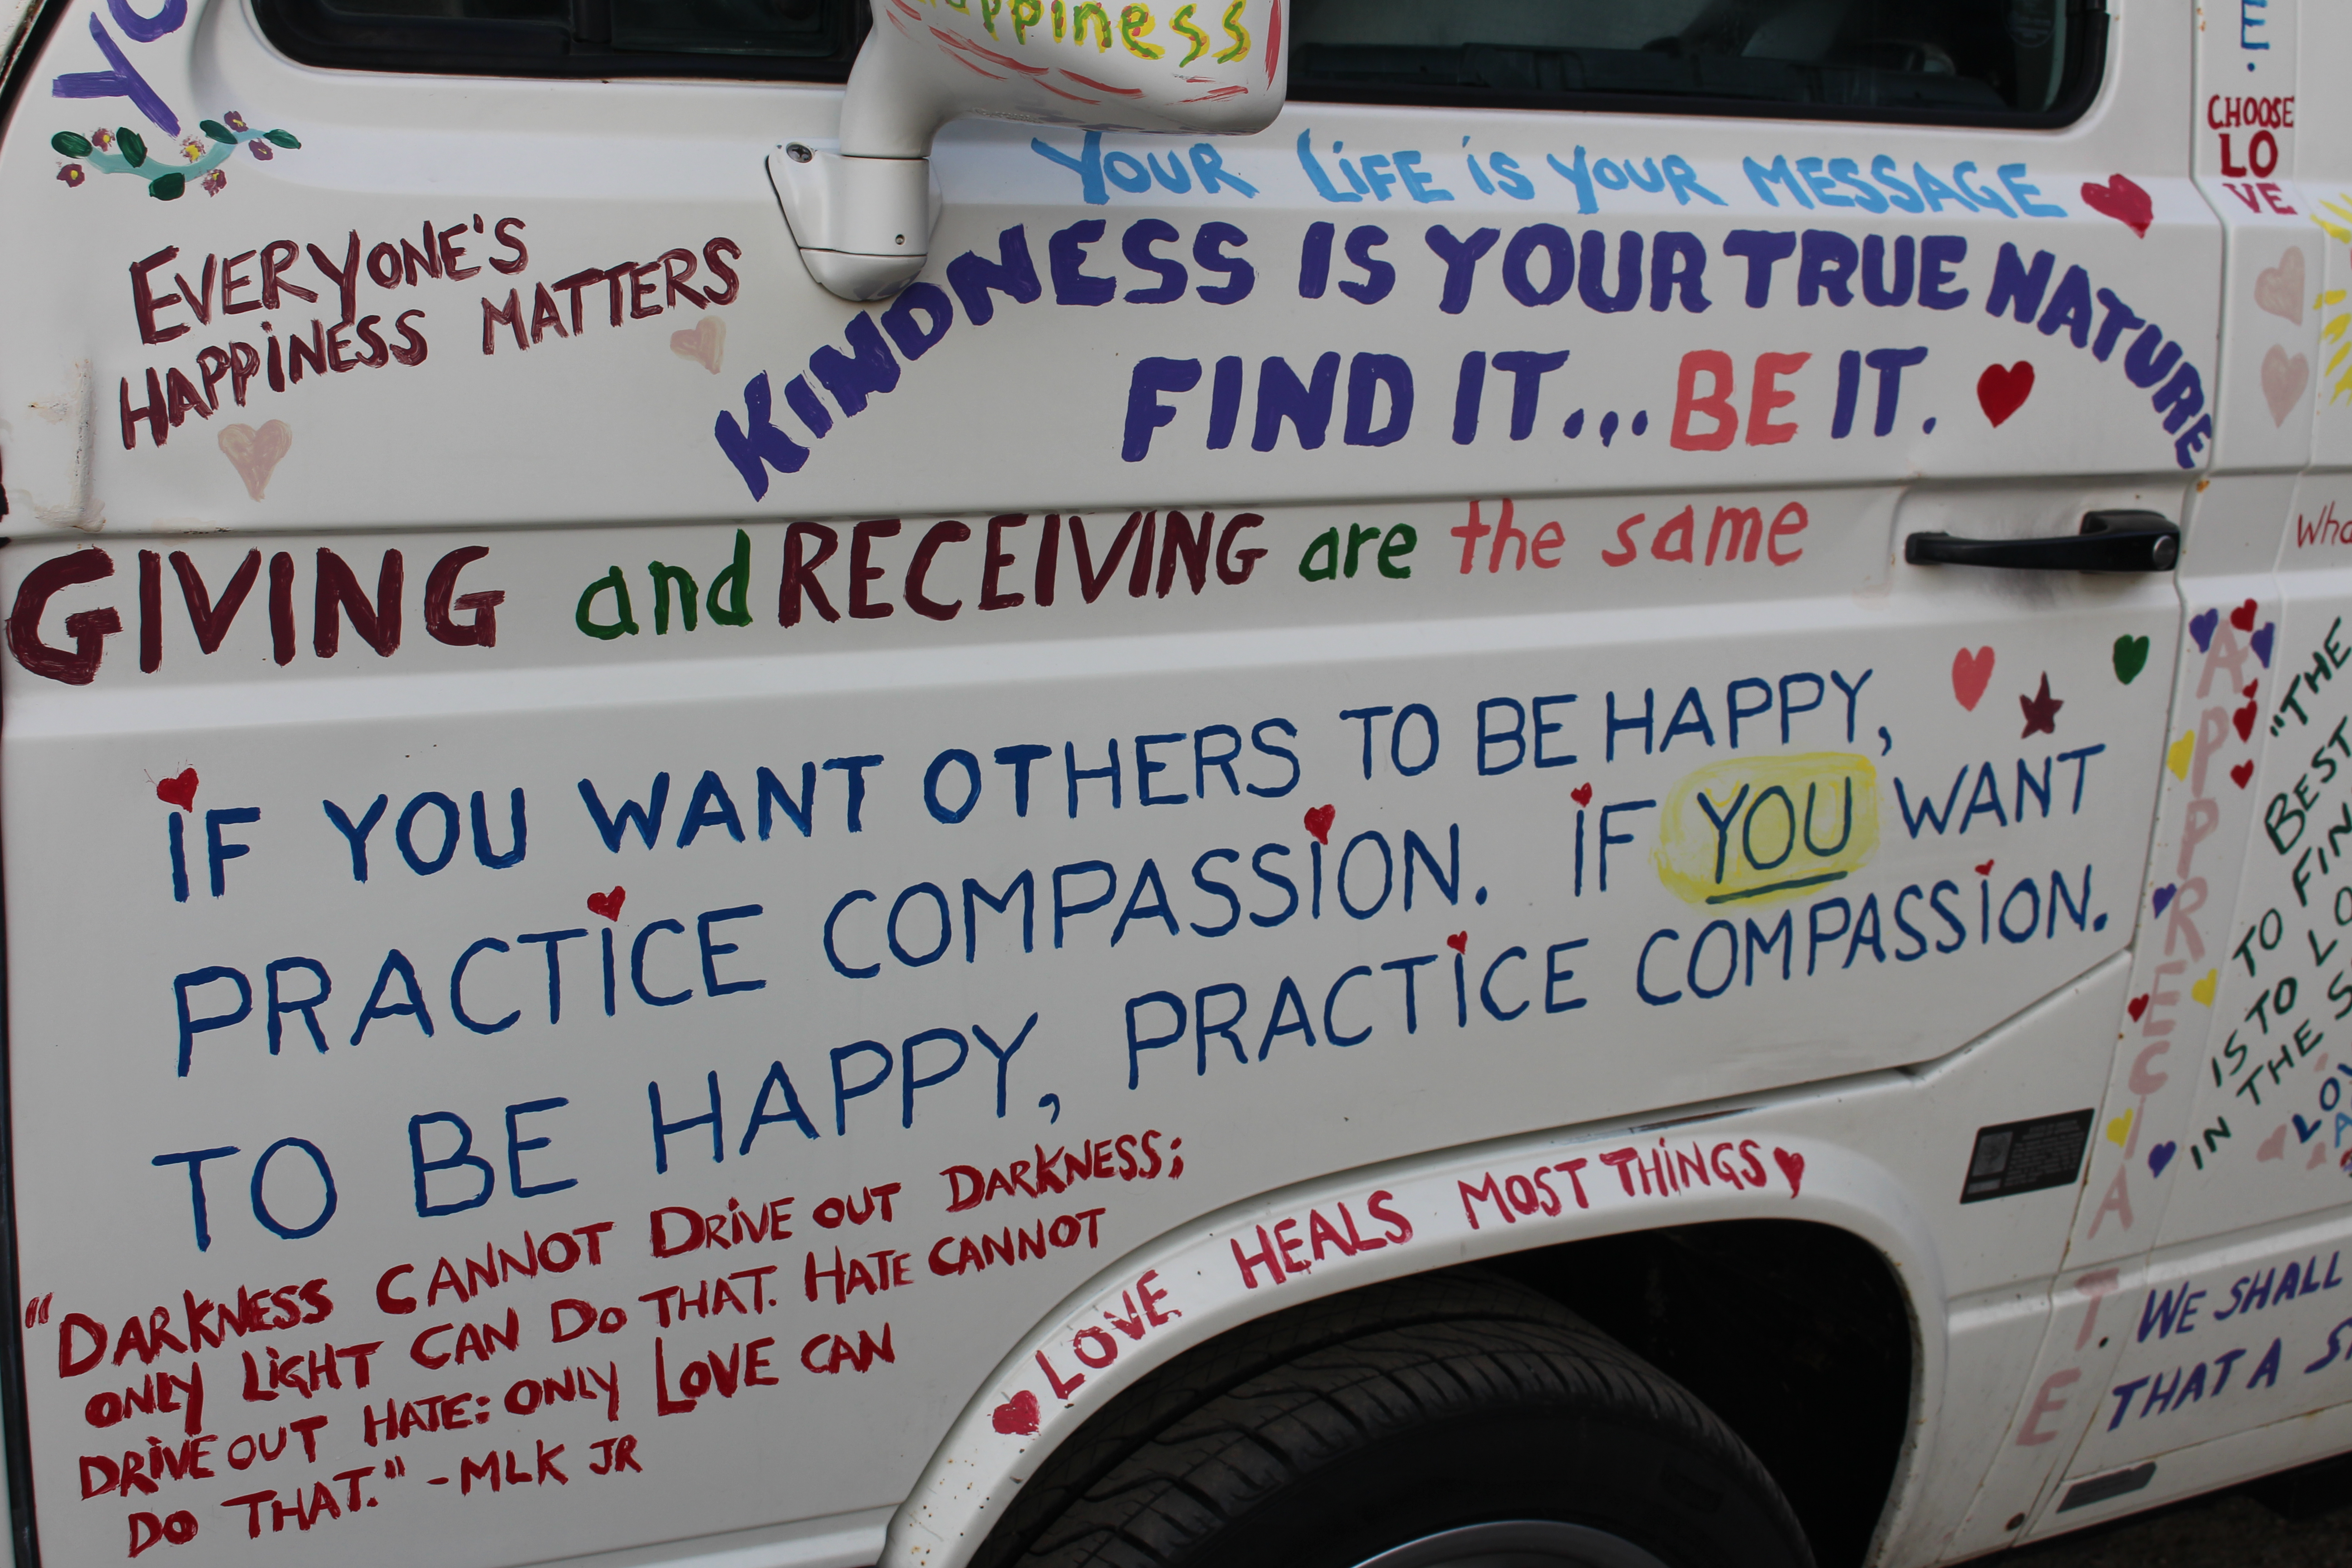 YO
Happiness
E.
CHOOSE
LO
VE
YOUR LiFE iS YOUR MESSAGE
EVERYONE'S
HAPPiNESS MATTERS
KINDNESS IS YOUR TRUE NATURE
FIND IT... BE IT.
GIVING and RECEIVING are the same
IF YOU WANT OTHERS TO BE HAPPY,
PRACTICE COMPASSION. IF YOU WANT
TO BE HAPPY, PRACTICE COMPASSION.
"DARKNESS CANNOT DRiVE OUT DARKNESS;
ONLY LiGHT CAN DO THAT. HATE CANNOT
DRiVE OUT HATE: ONLY LOVE CAN
DO THAT." -MLK JR
LOVE HEALS MOST THiNGS
APPRECIATE
"THE
BEST
TO FIN
IS TO LO
IN THE S
WE SHALL
THAT A